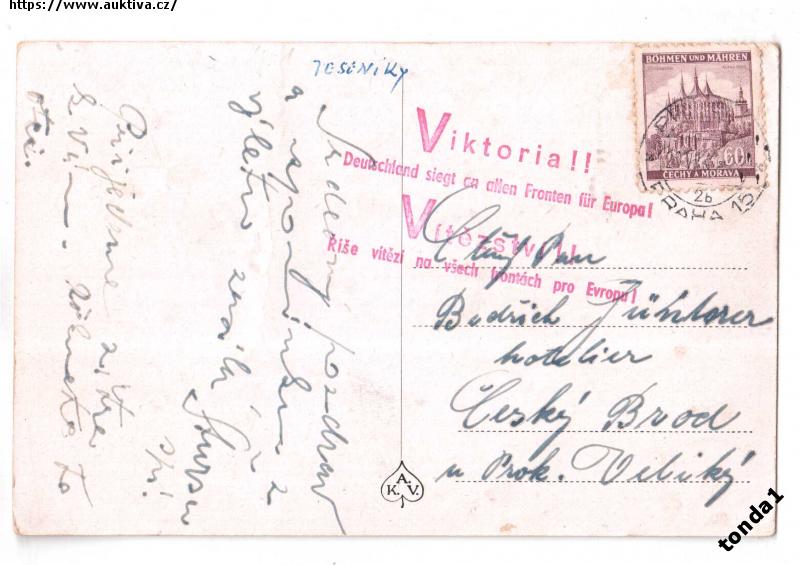 https://www.auktiva.cz/
JESENÍKY
BÖHMEN UND MÄHREN
60
ČECHY A MORAVA
PRAHA 15
26
Viktoria!!
Deutschland siegt an allen Fronten für Europa!
Vítězství!!
Říše vítězí na všech frontách pro Evropu!
Ctěný Pan
Bedřich
hotelier
Český Brod
u Prok. Veliký
Srdečný pozdrav
a vzpomínku z
výletu zasílá
Přijedeme zítra
k Vám.
otci.
A.
K. V.
tonda1